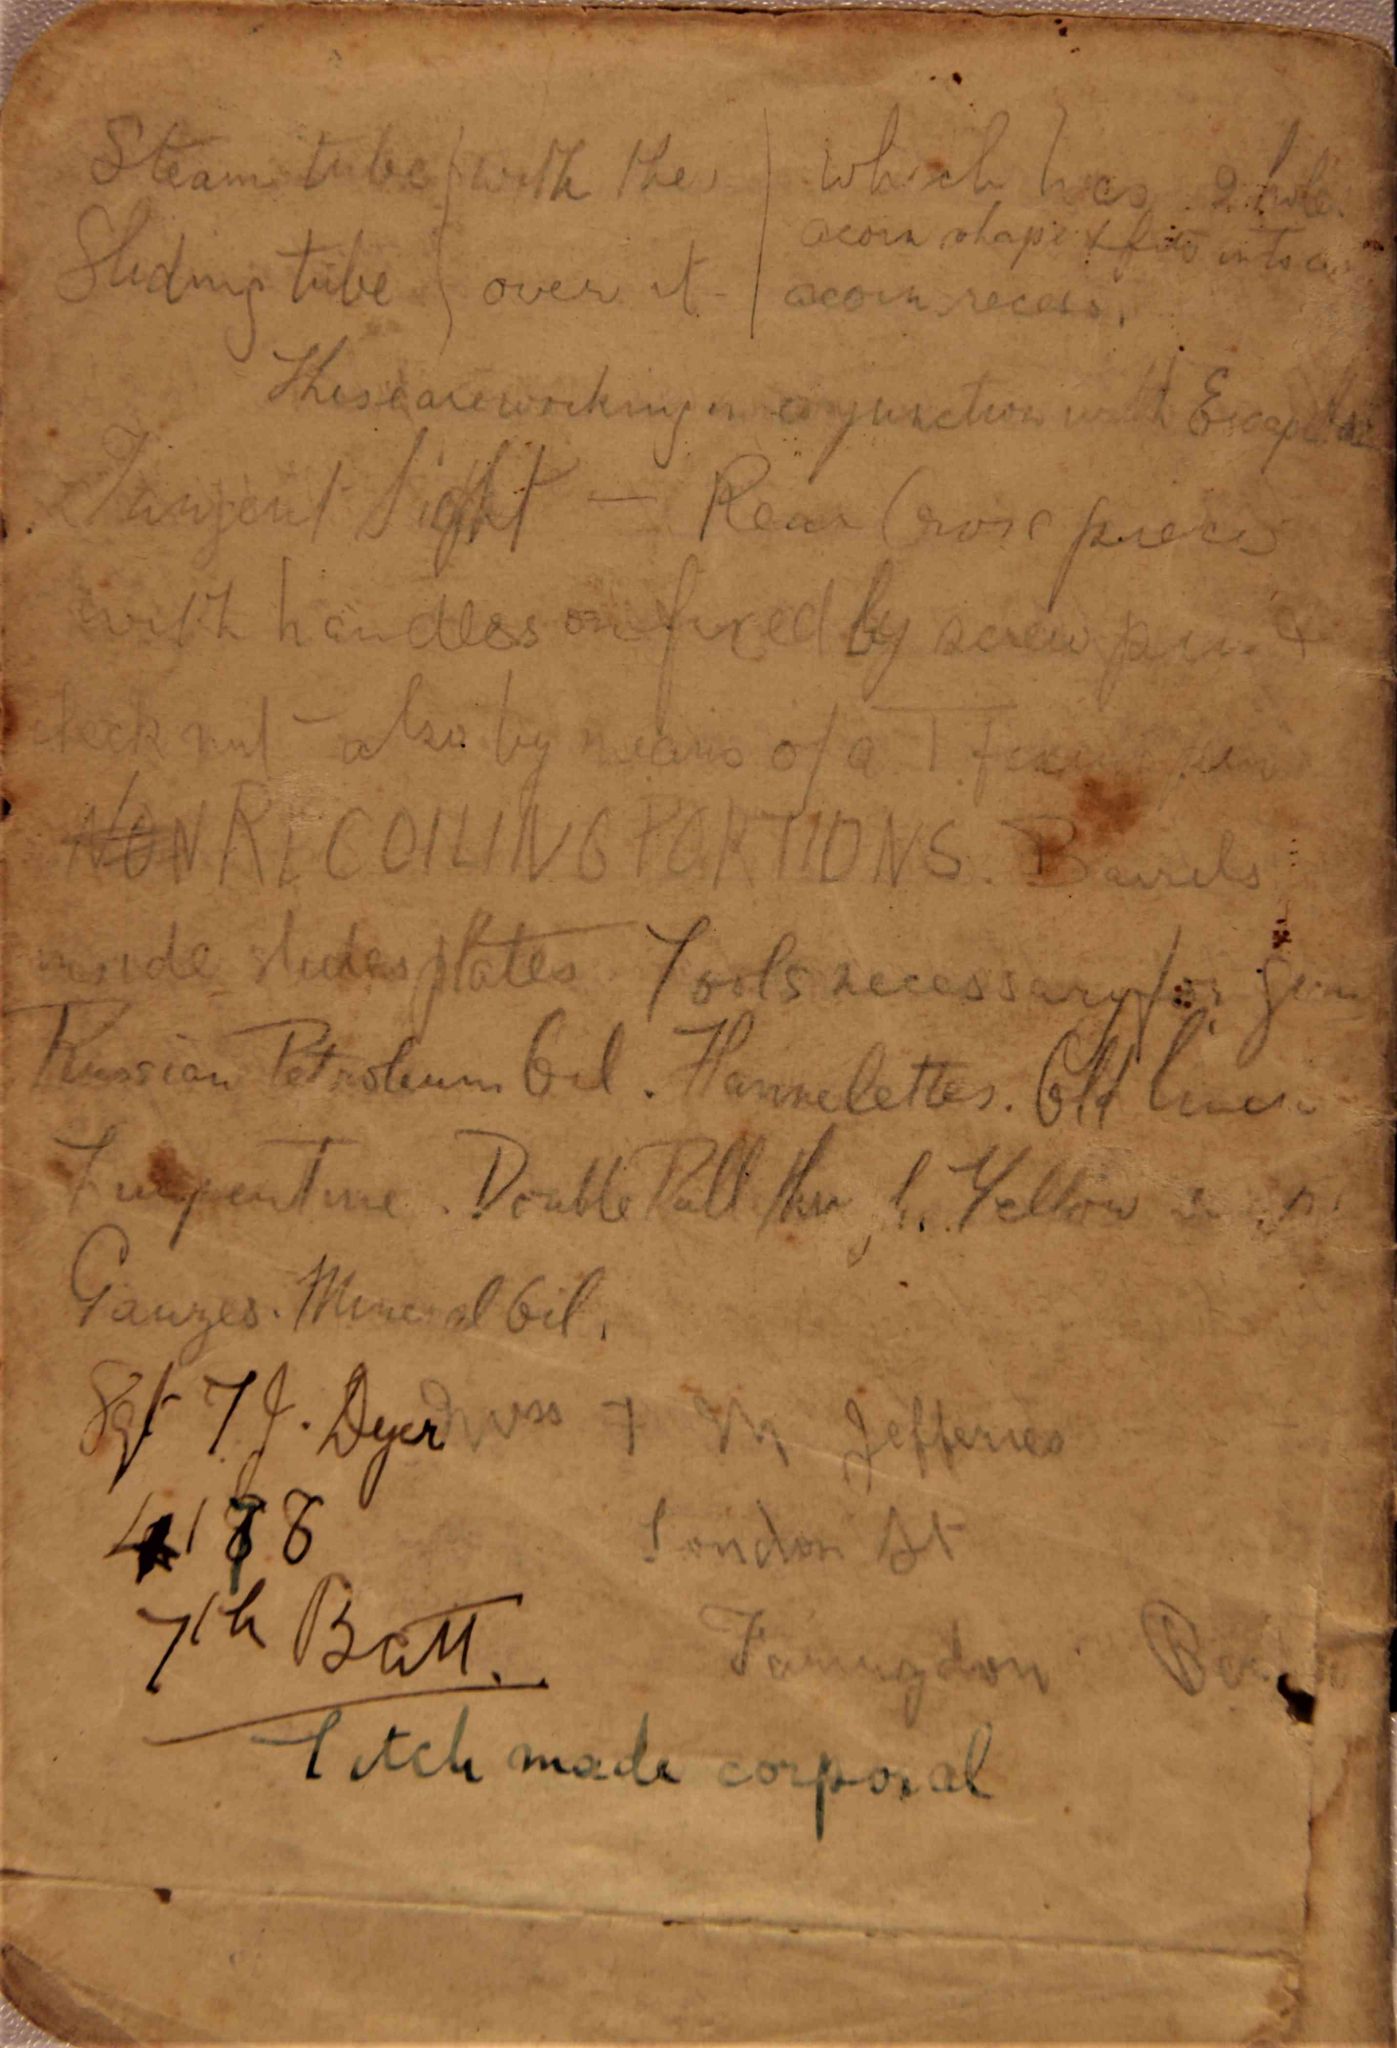 Steam tube with the which has 2 hole
acorn shape & fits into an
Sliding tube over it acorn recess.
These are working in conjunction with Escape
Tangent Sight — Rear Cross piece
with handles on fixed by screw pin &
check nut — also by means of a T fixing pin
NON RECOILING PORTIONS. Barrels
inside slides plates Tools necessary for gun
Russian Petroleum Oil. Flannelettes. Old linen
Turpentine. Double Pull through. Yellow
Gauzes. Mineral Oil.
Sgt T J. Dyer Miss F M Jefferies
4178 London St
7th Batt. Farringdon
Titch made corporal